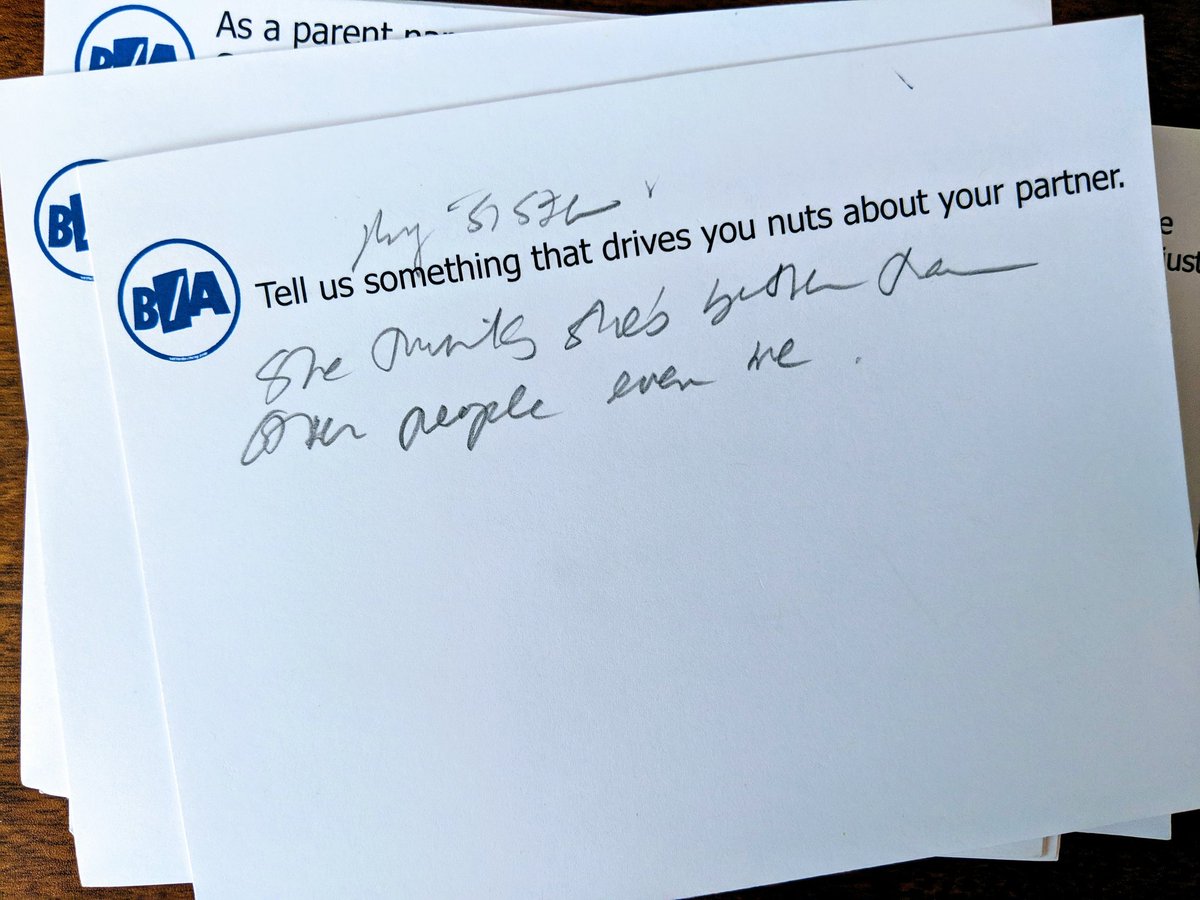 As a parent
B/A
B
B/A
My "Sister"
Tell us something that drives you nuts about your partner.
She thinks she's better than
other people even me.
e
just